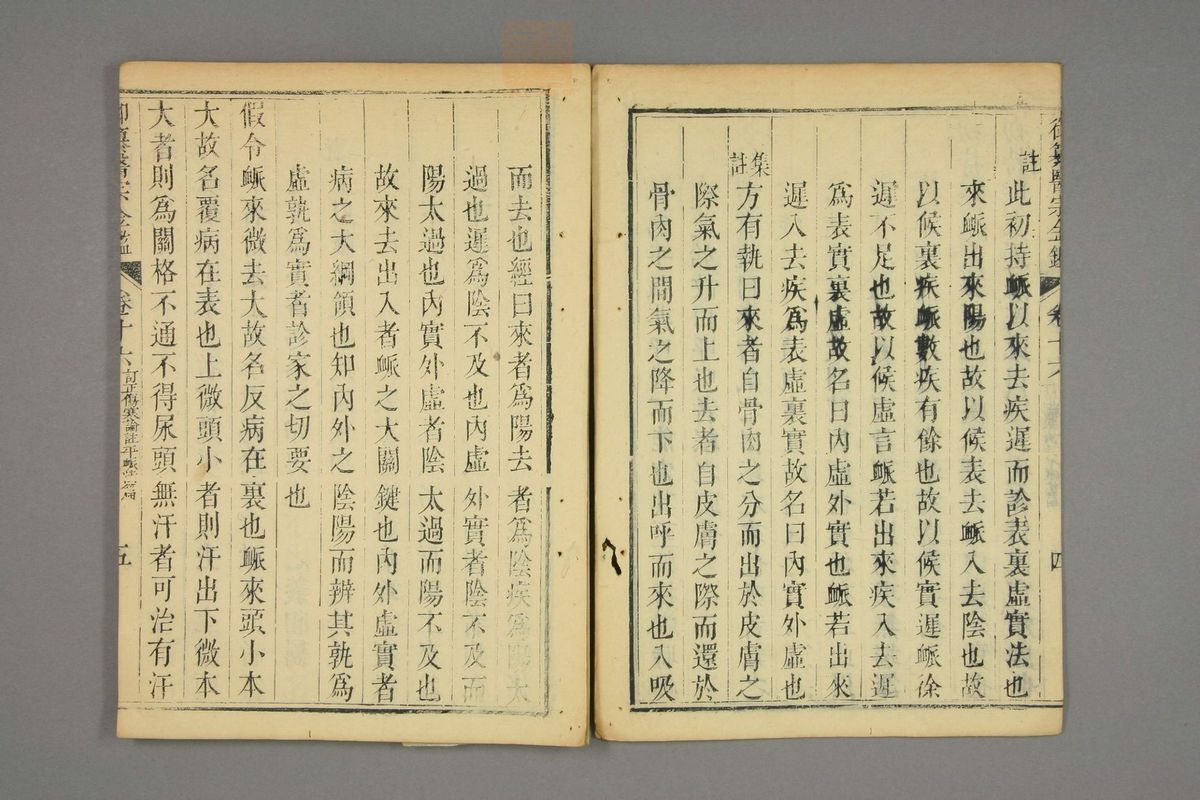 御纂醫宗金鑑 卷十六 四
註
此初持䘑以來去疾遲而診表裏虛實法也
來䘑出來陽也故以候表去䘑入去陰也故
以候裏疾䘑數疾有餘也故以候實遲䘑徐
遲不足也故以候虛言䘑若出來疾入去遲
爲表實裏虛故名曰內虛外實也䘑若出來
遲入去疾爲表虛裏實故名曰內實外虛也
集註
方有執曰來者自骨肉之分而出於皮膚之
際氣之升而上也去者自皮膚之際而還於
骨肉之間氣之降而下也出呼而來也入吸
而去也經曰來者爲陽去者爲陰疾爲陽太
過也遲爲陰不及也內虛外實者陰不及而
陽太過也內實外虛者陰太過而陽不及也
故來去出入者䘑之大關鍵也內外虛實者
病之大綱領也知內外之陰陽而辨其孰爲
虛孰爲實者診家之切要也
假令䘑來微去大故名反病在裏也䘑來頭小本
大故名覆病在表也上微頭小者則汗出下微本
大者則爲關格不通不得尿頭無汗者可治有汗
御纂醫宗金鑑 卷十六 訂正傷寒論註平䘑 五